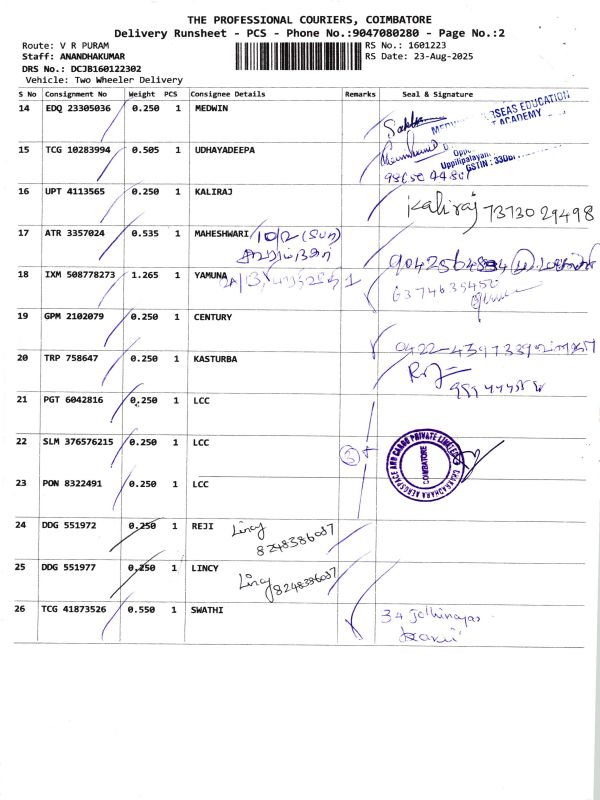 THE PROFESSIONAL COURIERS, COIMBATORE
Delivery Runsheet - PCS - Phone No.:9047080280 - Page No.:2
Route: V R PURAM
RS No.: 1601223
Staff: ANANDHAKUMAR
RS Date: 23-Aug-2025
DRS No.: DCJB160122302
Vehicle: Two Wheeler Delivery
S No Consignment No Weight PCS Consignee Details Remarks Seal & Signature
14 EDQ 23305036 0.250 1 MEDWIN
OVERSEAS EDUCATION
ACADEMY
15 TCG 10283994 0.505 1 UDHAYADEEPA
Uppilipalayam
GSTIN : 33
16 UPT 4113565 0.250 1 KALIRAJ
Kaliraj 7373029498
17 ATR 3357024 0.535 1 MAHESHWARI 10/2 (Sun)
18 IXM 508778273 1.265 1 YAMUNA
6374639450
19 GPM 2102079 0.250 1 CENTURY
0422-4397339
20 TRP 758647 0.250 1 KASTURBA
21 PGT 6042816 0.250 1 LCC
22 SLM 376576215 0.250 1 LCC
3
CHAKRADHARA AEROSPACE AND CARGO PRIVATE LIMITED
COIMBATORE
23 PON 8322491 0.250 1 LCC
24 DDG 551972 0.250 1 REJI Lincy
8248386087
25 DDG 551977 0.250 1 LINCY Lincy
8248386087
26 TCG 41873526 0.550 1 SWATHI
34 Jothinagar